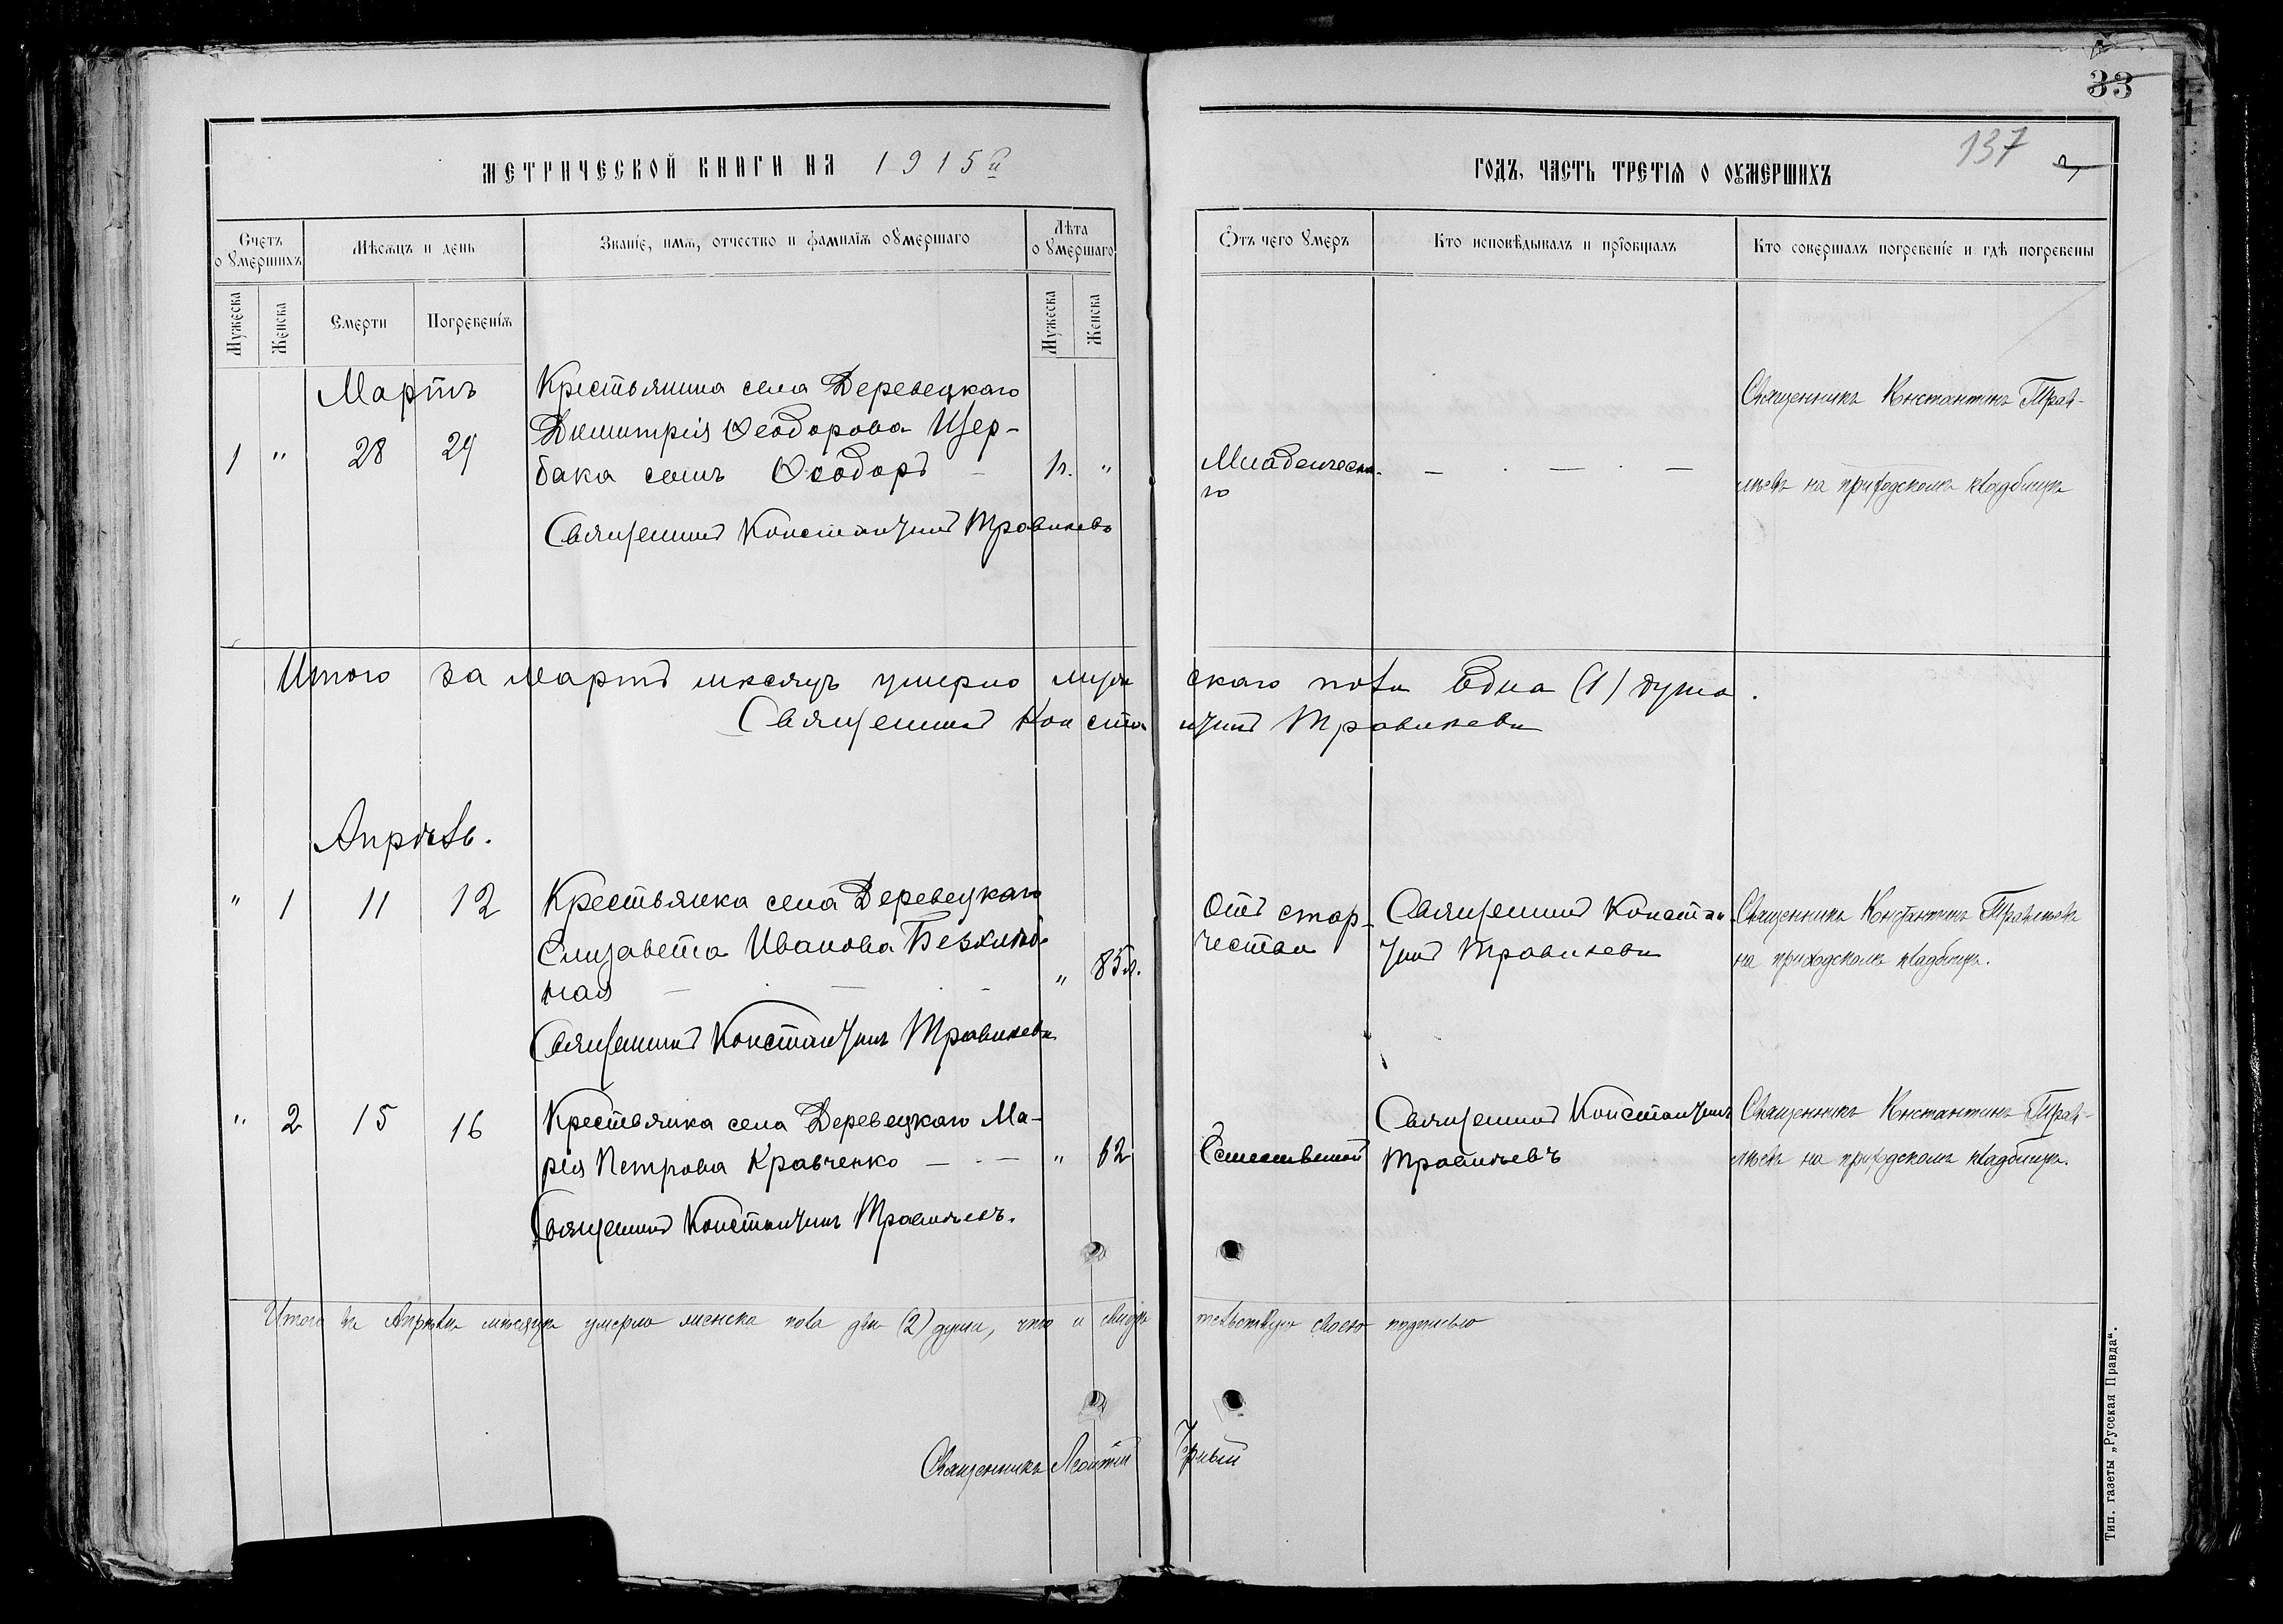 33
137
МЕТРИЧЕСКОЙ КНИГИ НА 1915й
ГОДЪ, ЧАСТЬ ТРЕТІѦ О ОУМЕРШИХЪ
Счетъ оумершихъ
Мѣсѧцъ и день
Званіе, имѧ, отчество и фамиліѧ оумершаго
Лѣта оумершаго
Отъ чего умеръ
Кто исповѣдывалъ и пріобщалъ
Кто совершалъ погребеніе и гдѣ погребены
Мужеска
Женска
Смерти
Погребеніѧ
Мужеска
Женска
Мартъ
Крестьянина села Деревецкаго
Димитрія Ѳеодорова Щер-
1 " 28 29 бака сынъ Ѳеодоръ — 1г. "
Священникъ Константинъ Травиневъ
Младенческа-
го
— . — . —
Священникъ Константинъ Трав-
иневъ на приходскомъ кладбищѣ
Итого за мартъ мѣсяцъ умерло мужескаго пола одна (1) душа.
Священникъ Константинъ Травиневъ
Апрѣль.
" 1 11 12 Крестьянка села Деревецкаго
Елизавета Иванова
ная — . — . - " 85л.
Священникъ Константинъ Травиневъ
Отъ стар-
чества
Священникъ Констан-
тинъ Травиневъ
Священникъ Константинъ Травиневъ
на приходскомъ кладбищѣ.
" 2 15 16 Крестьянка села Деревецкаго Ма-
рія Петрова Кравченко — . — " 62
Священникъ Константинъ Травиневъ.
Естественной
Священникъ Константинъ
Травиневъ
Священникъ Константинъ Трав-
иневъ на приходскомъ кладбищѣ.
Итого въ Апрѣлѣ мѣсяцѣ умерло женска пола двѣ (2) души, что и свидѣтельствую своею подписью
Священникъ Леонтій Чёрный
Тип. газеты „Русская Правда“.